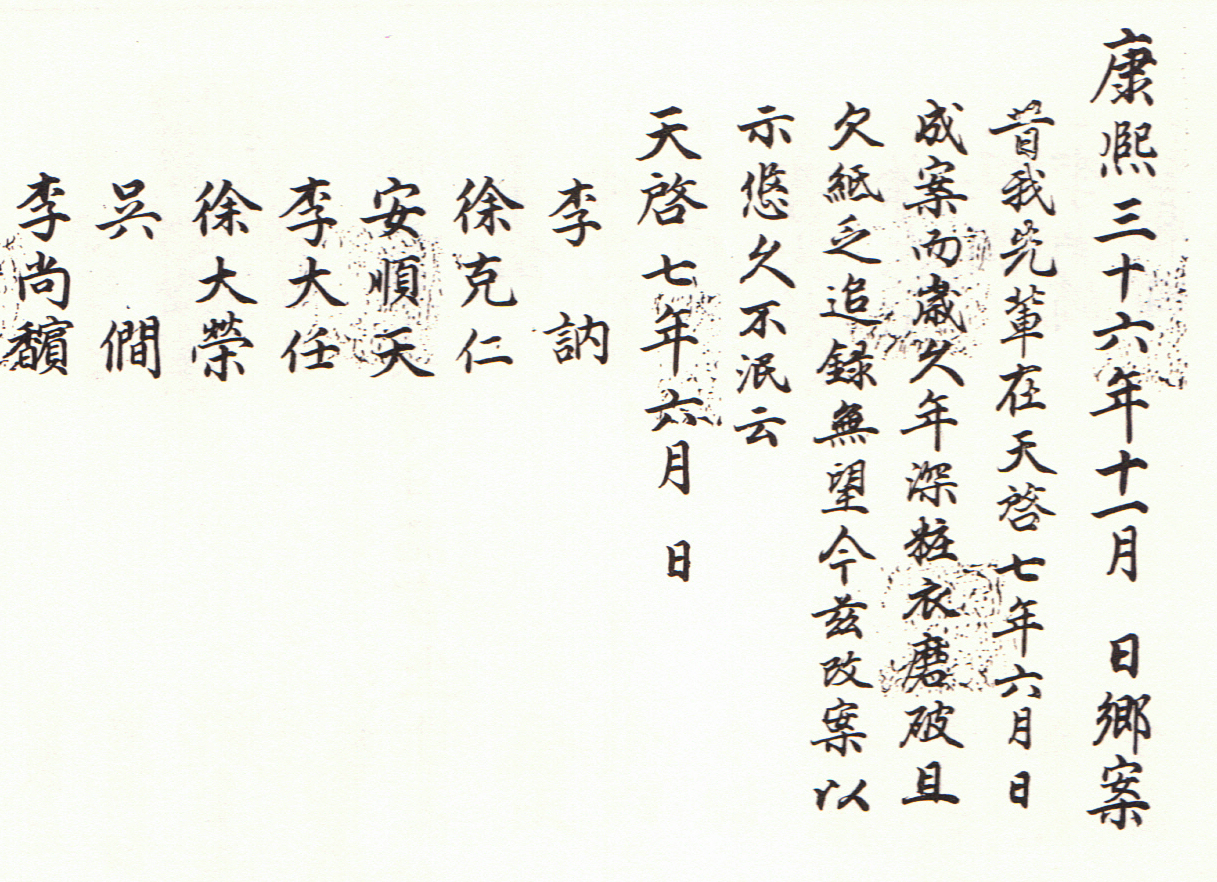 康熙三十六年十一月 日鄕案
昔我先輩在天啓七年六月日
成案而歲久年深粧衣磨破且
欠紙乏追録無望今玆改案以
示悠久不泯云
天啓七年六月 日
李 訥
徐克仁
安順天
李大任
徐大榮
吳 僩
李尚馪